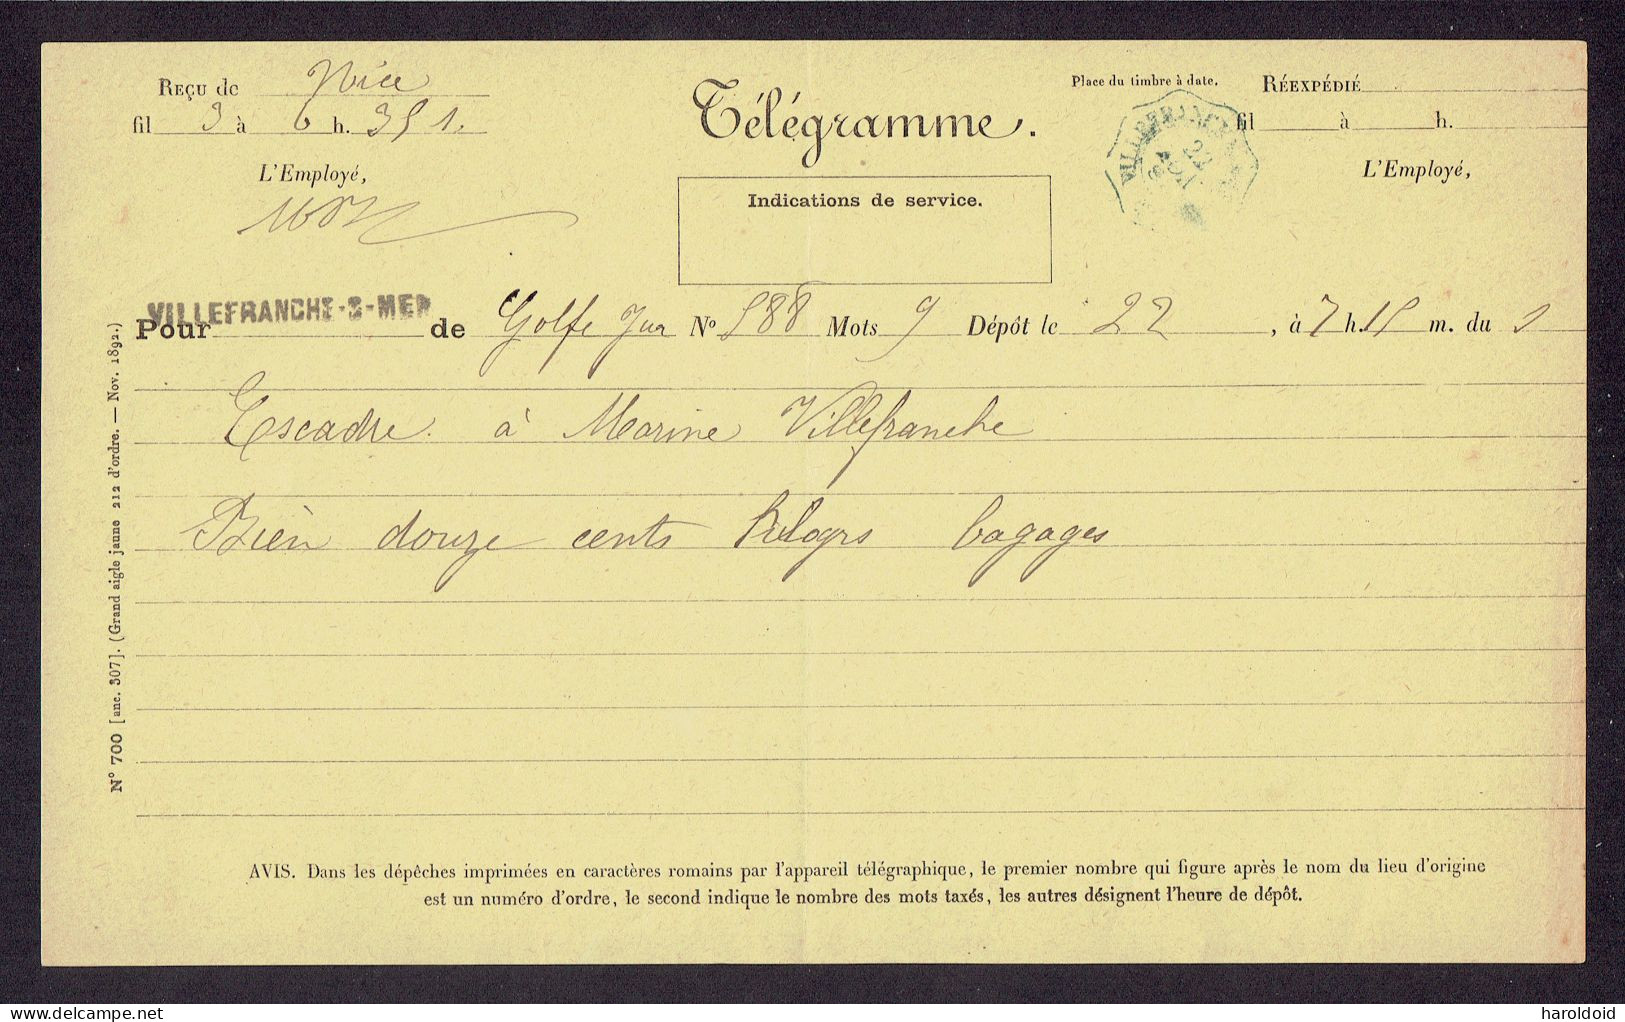 Reçu de Nice
fil 3 à 6 h. 35 s.
L'Employé,
Télégramme.
Indications de service.
Place du timbre à date.
RÉEXPÉDIÉ
fil à h.
L'Employé,
VILLEFRANCHE-S-MER
Pour de Golfe Jua N° 588 Mots 9 Dépôt le 22, à 7 h. 15 m. du s
Escadre à Marine Villefranche
Bien douze cents kilogrs bagages
N° 700 [anc. 307]. (Grand aigle jaune 212 d'ordre. — Nov. 1892.)
AVIS. Dans les dépêches imprimées en caractères romains par l'appareil télégraphique, le premier nombre qui figure après le nom du lieu d'origine
est un numéro d'ordre, le second indique le nombre des mots taxés, les autres désignent l'heure de dépôt.
delcampe.net
haroldoid